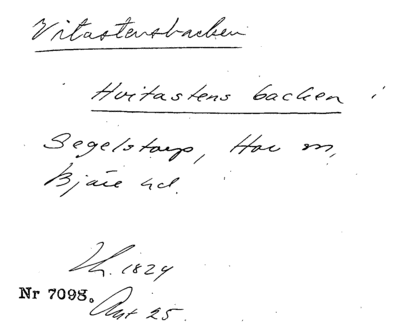 Vitastensbacken
Hvitastens backen i
Segelstorp, Hov sn,
Bjäre hd.
Lh. 1824
Nr 7098.
Akt 25